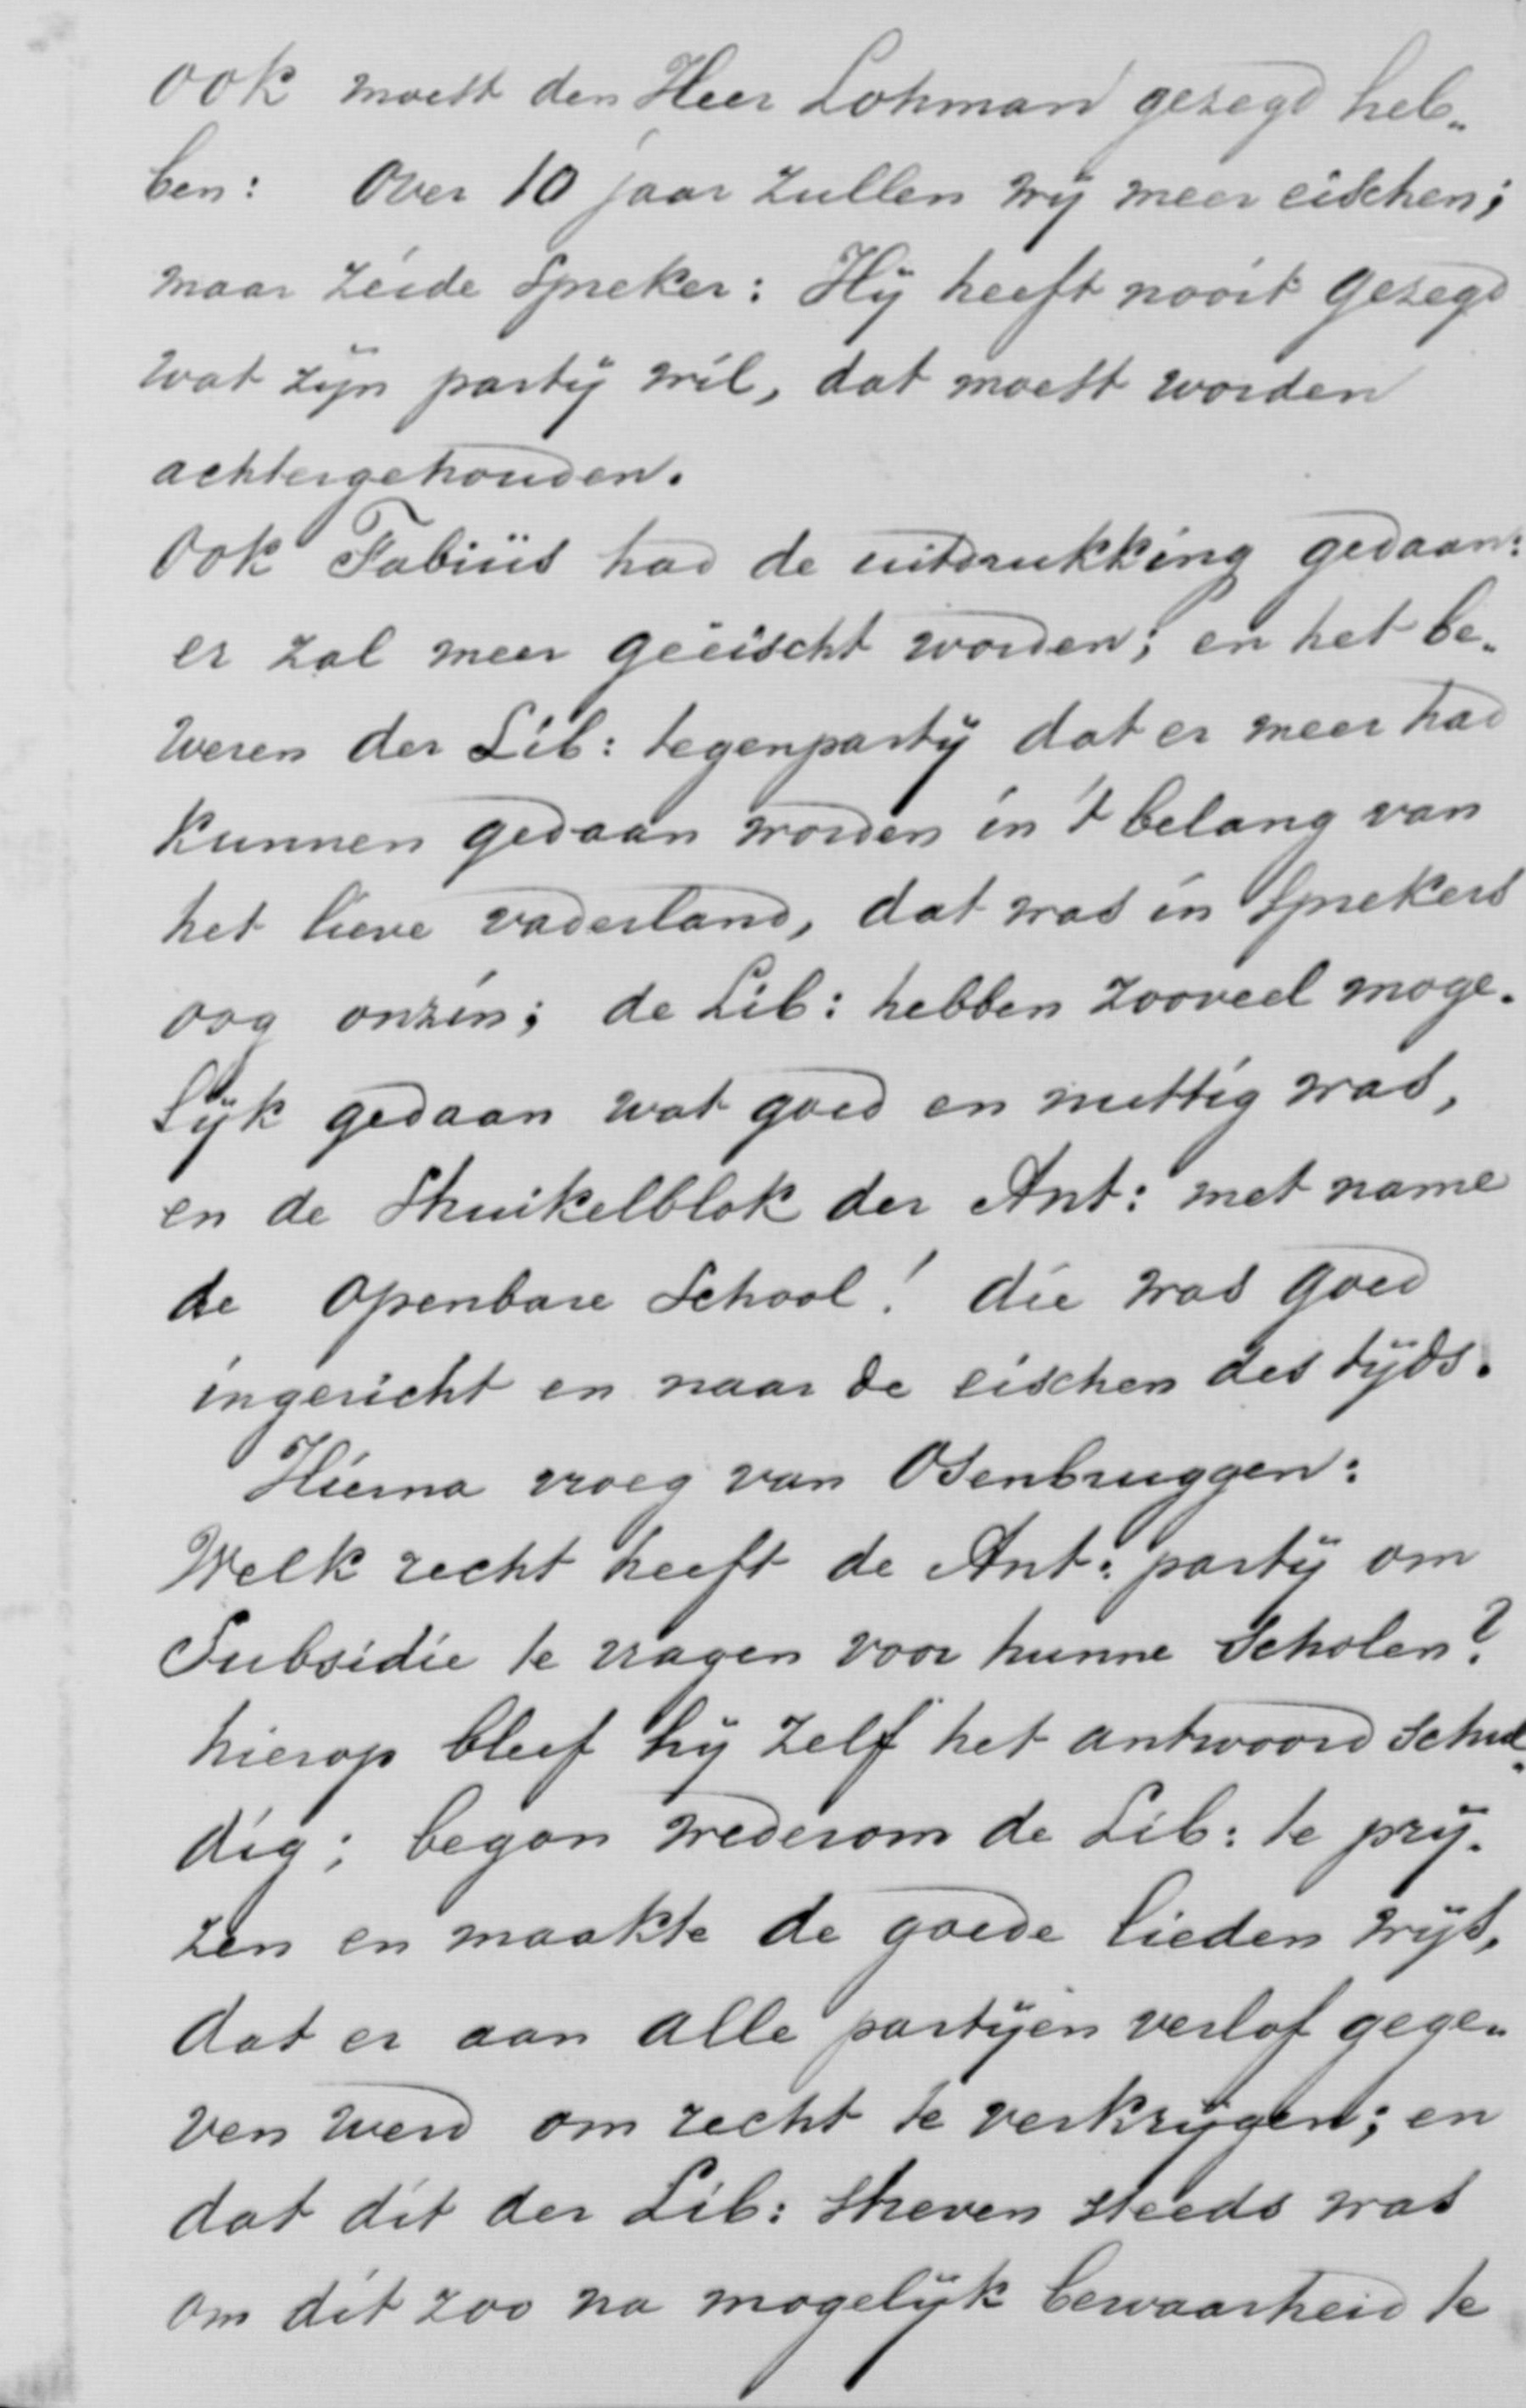 ook moest den Heer Lohman gezegd heb„
ben: Over 10 jaar zullen wij meer eischen;
maar zeide Spreker: Hij heeft nooit gezegd
wat zijn partij wil, dat moest worden
achtergehouden.
Ook Fabiüs had de uitdrukking gedaan:
er zal meer geëischt worden; en het be„
weren der Lib: tegenpartij dat er meer had
kunnen gedaan worden in 't belang van
het lieve vaderland, dat was in Sprekers
oog onzin; de Lib: hebben zooveel moge„
lijk gedaan wat goed en nuttig was,
en de Struikelblok der Ant: met name
de openbare School! die was goed
ingericht en naar de eischen des tijds.
Hierna vroeg van Osenbruggen:
Welk recht heeft de Ant: partij om
Subsidie te vragen voor hunne Scholen?
hierop bleef hij zelf het antwoord schul„
dig; begon wederom de Lib: te prij„
zen en maakte de goede lieden wijs,
dat er aan alle partijen verlof gege„
ven werd om recht te verkrijgen; en
dat dit der Lib: streven steeds was
om dit zoo na mogelijk bewaarheid te